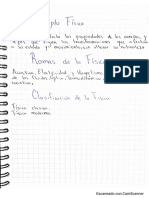 Física
las propiedades de los cuerpos, y
leyes que rigen las transformaciones que afectan
a su estado y movimiento sin alterar su naturaleza
Ramas de la Física
Acustica, Elasticidad y Magnetismo
de los fluidos, óptica, termodinámica
Clasificacion de la Física
Física clasica
Física moderna
Escaneado con CamScanner